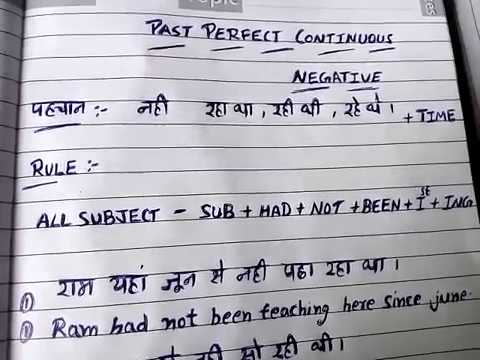 PAST PERFECT CONTINUOUS
NEGATIVE
पहचान :- नही रहा था, रही थी, रहे थे। + TIME
RULE :-
ALL SUBJECT - SUB + HAD + NOT + BEEN + Ist + ING
① राम यहां जून से नही पढा रहा था।
① Ram had not been teaching here since june.
रही थी।